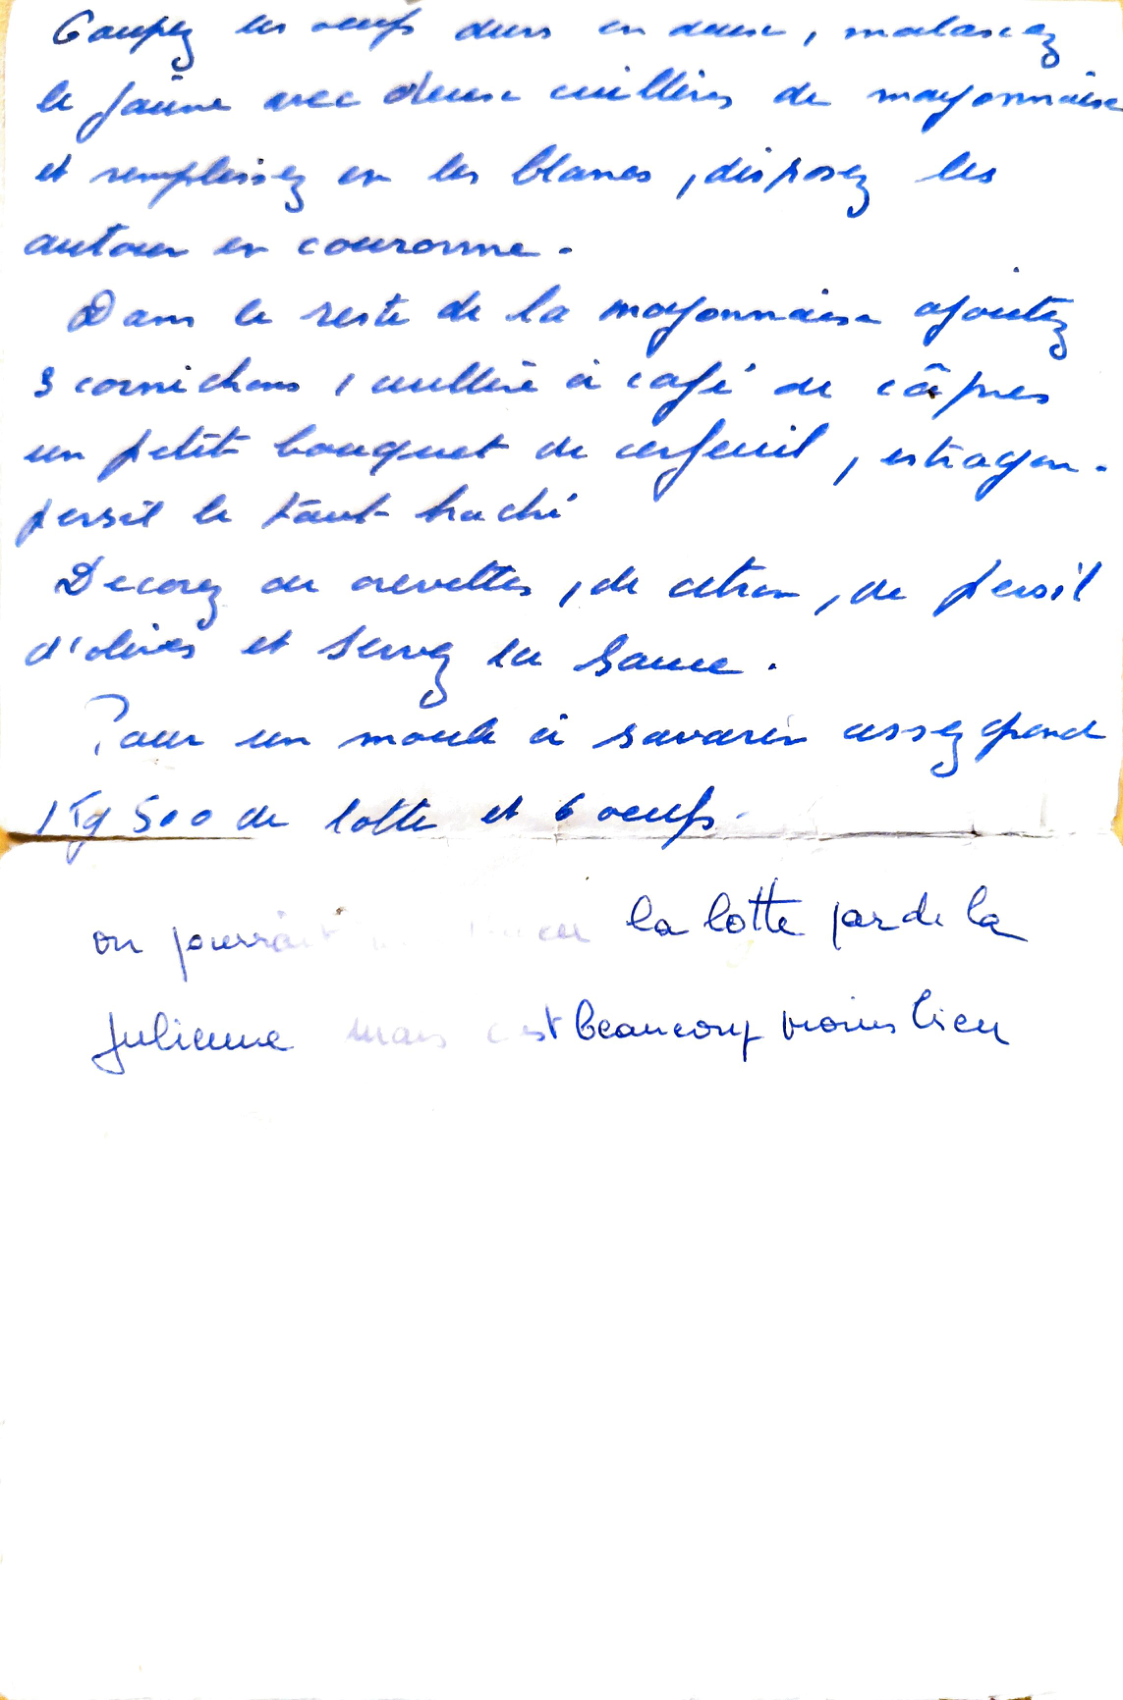 Coupez les oeufs durs en deux, malaxez
le jaune avec deux cuillères de mayonnaise
et remplissez en les blancs, disposez les
autour en couronne.
Dans le reste de la mayonnaise ajoutez
3 cornichons 1 cuillère à café de câpres
un petit bouquet de cerfeuil, estragon.
persil le tout haché
Decorez de crevettes, de citron, de persil
d'olives et servez la sauce.
Pour un moule à savarin assez grand
1 Kg 500 de lotte et 6 oeufs.
on pourrait la lotte par de la
Julienne mais c'est beaucoup moins bien